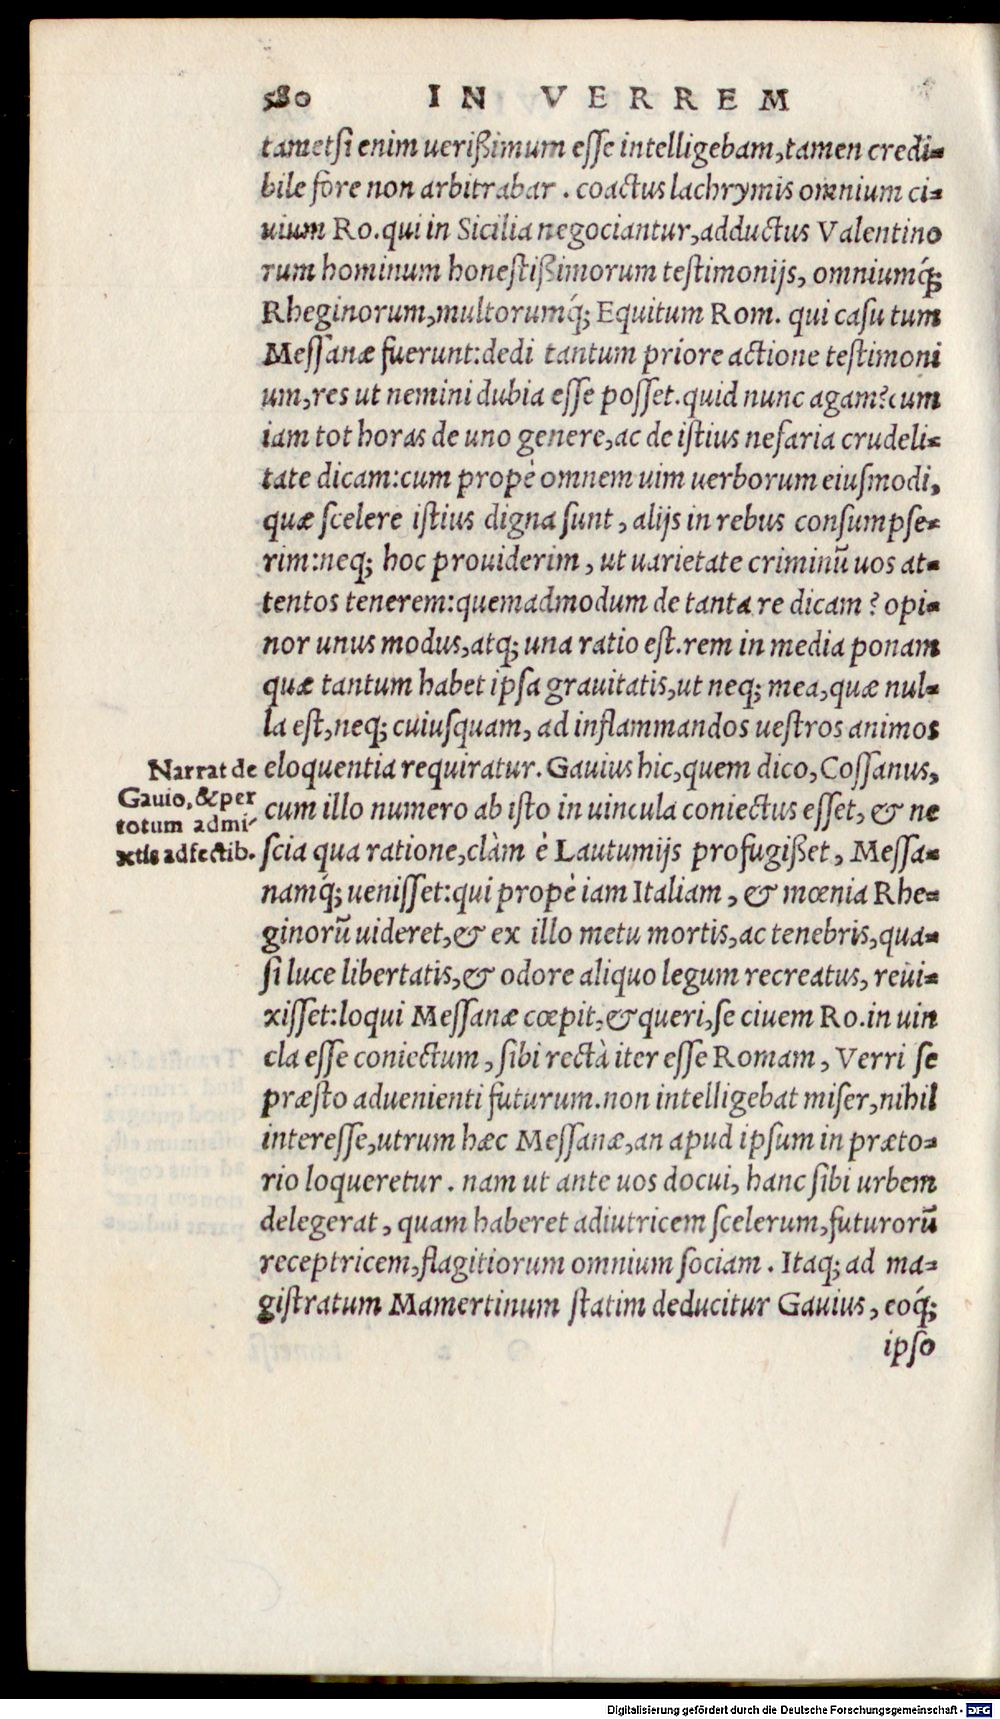 580 IN VERREM
tametsi enim uerißimum esse intelligebam, tamen credi-
bile fore non arbitrabar. coactus lachrymis omnium ci-
uium Ro. qui in Sicilia negociantur, adductus Valentino
rum hominum honestißimorum testimonijs, omniumq́;
Rheginorum, multorumq́; Equitum Rom. qui casu tum
Messanæ fuerunt: dedi tantum priore actione testimoni
um, res ut nemini dubia esse posset. quid nunc agam? cum
iam tot horas de uno genere, ac de istius nefaria crudeli-
tate dicam: cum propè omnem uim uerborum eiusmodi,
quæ scelere istius digna sunt, alijs in rebus consumpse-
rim: neq; hoc prouiderim, ut uarietate criminū uos at-
tentos tenerem: quemadmodum de tanta re dicam? opi-
nor unus modus, atq; una ratio est. rem in media ponam
quæ tantum habet ipsa grauitatis, ut neq; mea, quæ nul-
la est, neq; cuiusquam, ad inflammandos uestros animos
eloquentia requiratur. Gauius hic, quem dico, Cossanus,
cum illo numero ab isto in uincula coniectus esset, & ne
scia qua ratione, clàm è Lautumijs profugißet, Messa-
namq́; uenisset: qui propè iam Italiam, & mœnia Rhe-
ginorū uideret, & ex illo metu mortis, ac tenebris, qua-
si luce libertatis, & odore aliquo legum recreatus, reui-
xisset: loqui Messanæ cœpit, & queri, se ciuem Ro. in uin
cla esse coniectum, sibi rectà iter esse Romam, Verri se
præsto aduenienti futurum. non intelligebat miser, nihil
interesse, utrum hæc Messanæ, an apud ipsum in præto-
rio loqueretur. nam ut ante uos docui, hanc sibi urbem
delegerat, quam haberet adiutricem scelerum, futurorū
receptricem, flagitiorum omnium sociam. Itaq; ad ma-
gistratum Mamertinum statim deducitur Gauius, eoq́;
ipso
Narrat de
Gauio, & per
totum admi-
xtis adfectib.
Digitalisierung gefördert durch die Deutsche Forschungsgemeinschaft - DFG